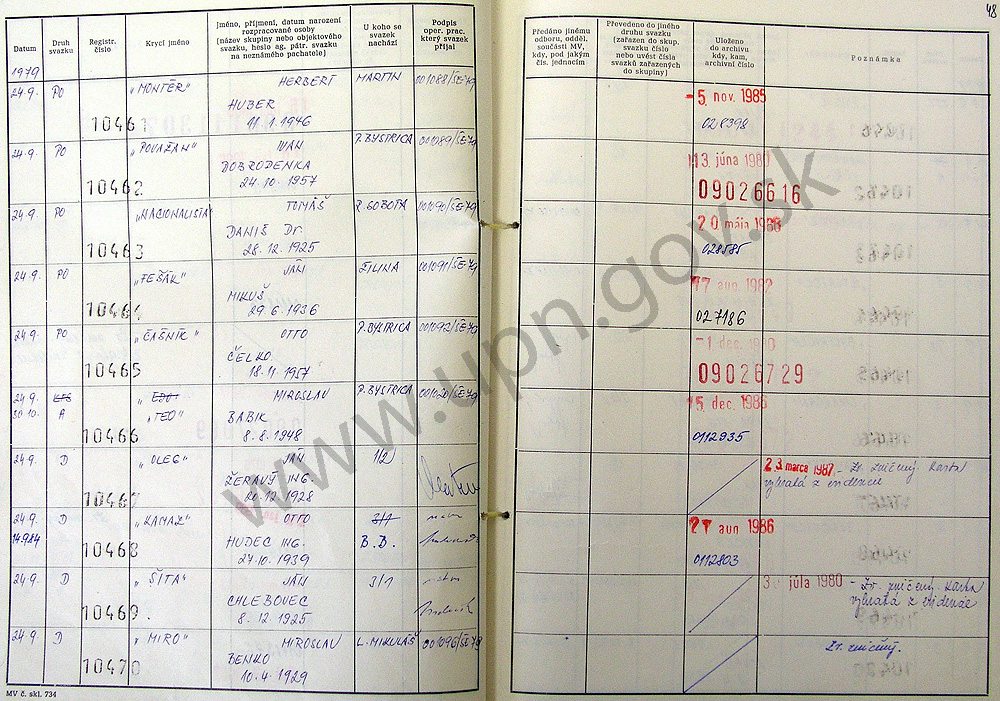 48
Datum
Druh svazku
Registr. číslo
Krycí jméno
Jméno, příjmení, datum narození
rozpracované osoby
(název skupiny nebo objektového
svazku, heslo ag. pátr. svazku
na neznámého pachatele)
U koho se
svazek
nachází
Podpis
oper. prac.
který svazek
přijal
Předáno jinému
odboru, odděl.
součásti MV,
kdy, pod jakým
čís. jednacím
Převedeno do jiného
druhu svazku
(zařazen do skup.
svazku číslo
nebo uvést čísla
svazků zařazených
do skupiny)
Uloženo
do archivu
kdy, kam,
archivní číslo
Poznámka
1979
24.9. PO „MONTÉR“ HERBERT MARTIN 001088/ŠE-79
HUBER
10461 11.1.1946
- 5. nov. 1985
028398
24.9. PO „POVAŽAN“ IVAN P. BYSTRICA 001089/ŠE-79
DOBRODENKA
10462 24.10.1957
13. júna 1980
09026616
24.9. PO „NACIONALISTA“ TOMÁŠ R. SOBOTA 001090/ŠE-79
DANIŠ Dr.
10463 28.12.1925
20 mája 1986
028585
24.9. PO „FEŠÁK“ JÁN ŽILINA 001091/ŠE-79
MIKUŠ
10464 29.6.1936
17 aug. 1982
027186
24.9. PO „ČAŠNÍK“ OTTO P. BYSTRICA 001092/ŠE-79
ČELKO
10465 18.11.1957
- 1 dec. 1980
09026729
24.9. „EDO“ MIROSLAV P. BYSTRICA
30.10. A „TEO“ BABIK
10466 8.8.1948
15. dec. 1986
0112935
24.9. D „OLEG“ JÁN 1/2
ŽERAVÝ ING.
10467 20.12.1928
23. marca 1987 - Zv. zničený. Karta
vybratá z evidencie
24.9. D „KAMAL“ OTTO 3/1
14.9.84 HUDEC ING. B.B.
10468 27.10.1939
27 aug 1986
0112803
24.9. D „ŠÍTA“ JÁN 3/1
CHLEBOVEC
10469 8.12.1925
júla 1980 - Zv. zničený. Karta
vybratá z evidencie
24.9. D „MIRO“ MIROSLAV L. MIKULÁŠ 001096/ŠE-79
BENKO
10470 10.4.1929
Zv. zničený.
MV č. skl. 734
www.upn.gov.sk